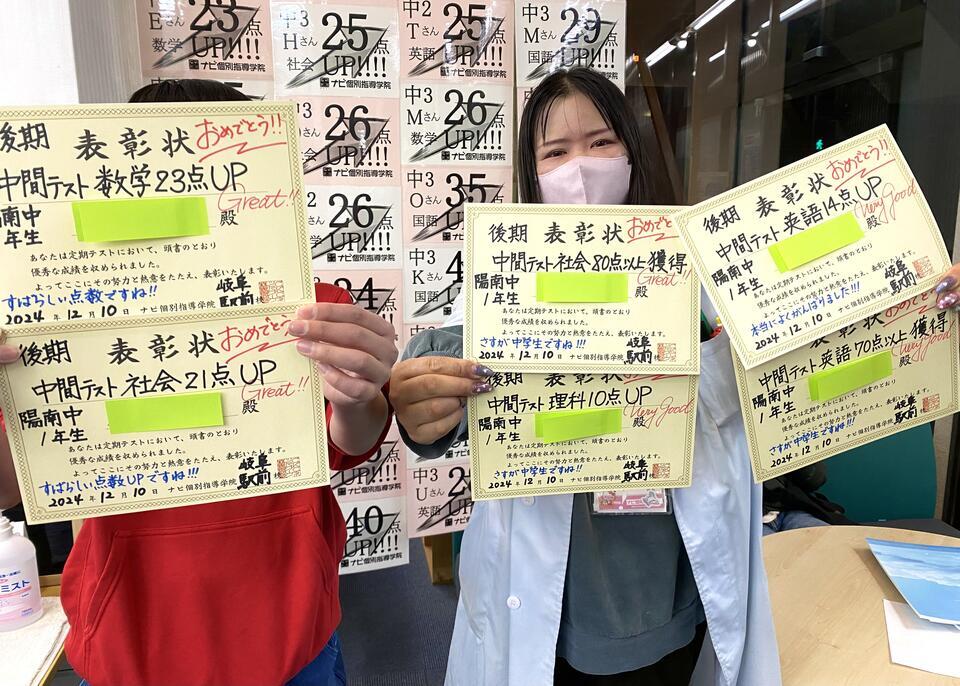 Eさん
数学
23点
UP!!!!
ナビ個別指導学院
中3
Hさん
社会
25点
UP!!!!
ナビ個別指導学院
中2
Tさん
英語
25点
UP!!!!
ナビ個別指導学院
中3
Mさん
国語
29点
UP!!!!
ナビ個別指導学院
26点
UP!!!!
ナビ個別指導学院
中3
Mさん
数学
26点
UP!!!!
ナビ個別指導学院
26点
UP!!!!
ナビ個別指導学院
中3
Oさん
国語
35
UP!!!
ナビ個別指導学院
中3
Kさん
国語
ナビ個別
中3
Uさん
ナビ
40点
UP!!!!
ナビ個別指導学院
後期 表彰状 おめでとう!!
中間テスト 数学23点UP
Great!!
陽南中
1年生
殿
あなたは定期テストにおいて、頭書のとおり
優秀な成績を収められました。
よってここにその努力と熱意をたたえ、表彰いたします。
すばらしい点数ですね!!!
2024年12月10日 ナビ個別指導学院 岐阜駅前校
後期 表彰状 おめでとう!!
中間テスト 社会21点UP
Great!!
陽南中
1年生
殿
あなたは定期テストにおいて、頭書のとおり
優秀な成績を収められました。
よってここにその努力と熱意をたたえ、表彰いたします。
すばらしい点数UPですね!!!
2024年12月10日 ナビ個別指導学院 岐阜駅前
後期 表彰状 おめでと
中間テスト社会80点以上獲得
Great!!
陽南中
1年生
殿
あなたは定期テストにおいて、頭書のとおり
優秀な成績を収められました。
よってここにその努力と熱意をたたえ、表彰いたします。
さすが中学生ですね!!!
2024年12月10日 ナビ個別指導学院 岐阜駅前
後期 表彰状
中間テスト 理科10点UP
Very Good
陽南中
1年生
殿
あなたは定期テストにおいて、頭書のとおり
優秀な成績を収められました。
よってここにその努力と熱意をたたえ、表彰いたします。
さすが中学生ですね!!!
2024年12月10日 ナビ個別指導学院 岐阜駅前
後期 表彰状 おめでとう!!
中間テスト英語14点UP
Very Good
陽南中
1年生
殿
あなたは定期テストにおいて、頭書のとおり
優秀な成績を収められました。
よってここにその努力と熱意をたたえ、表彰いたします。
本当によくがんばりました!!!
2024年12月10日 ナビ個別指導学院 岐阜駅前
中間テスト英語70点以上獲得
Very Good
陽南中
1年生
殿
あなたは定期テストにおいて、頭書のとおり
優秀な成績を収められました。
よってここにその努力と熱意をたたえ、表彰いたします。
さすが中学生ですね!!!
2024年12月10日 ナビ個別指導学院 岐阜駅前
ミスト